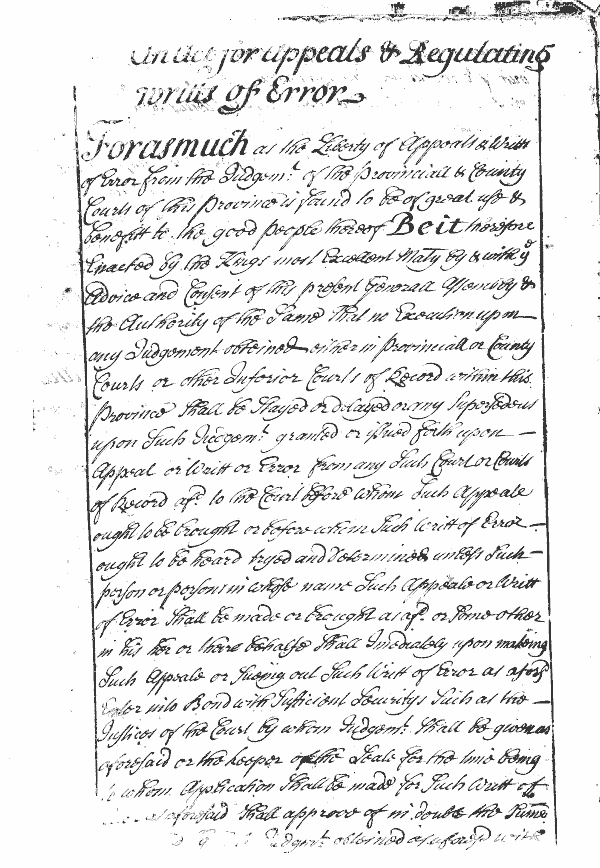 An Act for Appeals & Regulating
Writts of Error
Forasmuch as the Liberty of Appeals & Writt
of Error from the Judgem.t of the Provinciall & County
Courts of this Province is found to be of great use &
benefitt to the good people thereof Be it therefore
Enacted by the Kings most Excellent Maty by & with ye
Advice and Consent of this present Generall Assembly &
the Authority of the Same That no Execution upon
any Judgement obtained either in Provinciall or County
Courts or other Inferior Courts of Record within this
Province Shall be Stayed or delayed or any Supersedeus
upon Such Judgem.t granted or issued forth upon
Appeal or Writt or Error from any Such Court or Courts
of Record afs.d to the Court before whom Such Appeale
ought to be brought or before whom Such Writt of Error
ought to be heard tryed and Determined unless Such
person or persons in whose name Such Appeale or Writt
of Error Shall be made or brought as afs.d or Some other
in his her or there behalfe Shall Imediately upon making
Such Appeale or Sueing out Such Writt of Error as afors.d
Enter into Bond with Sufficient Securitys Such as the
Justices of the Court by whom Judgem.t Shall be given as
aforesaid or the keeper of the Seale for the time being
to whom Application Shall be made for Such Writt of
as aforesaid Shall approve of in double the Summe
Judgm.t obtained as afors.d with